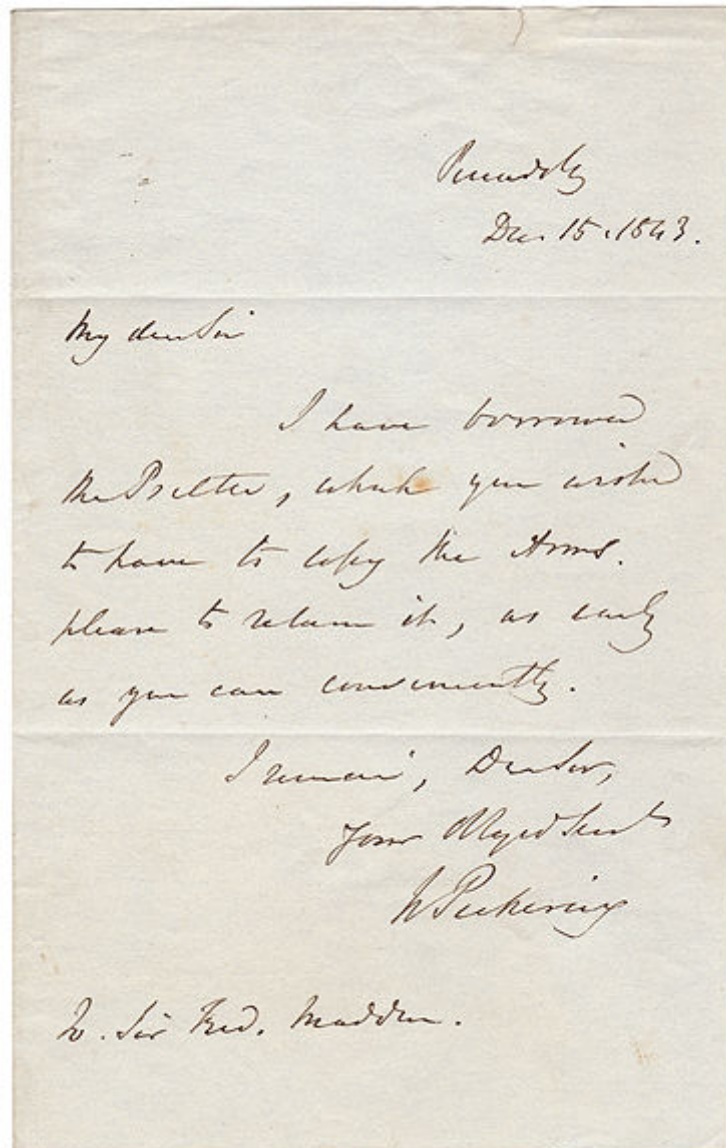 Piccadilly
Dec. 15. 1843.
My dear Sir
I have borrowed
the Psalter, which you wished
to have to copy the Arms.
please to return it, as early
as you can conveniently.
I remain, Dear Sir,
Your Obliged Servt
W Pickering
To. Sir Fred. Madden.